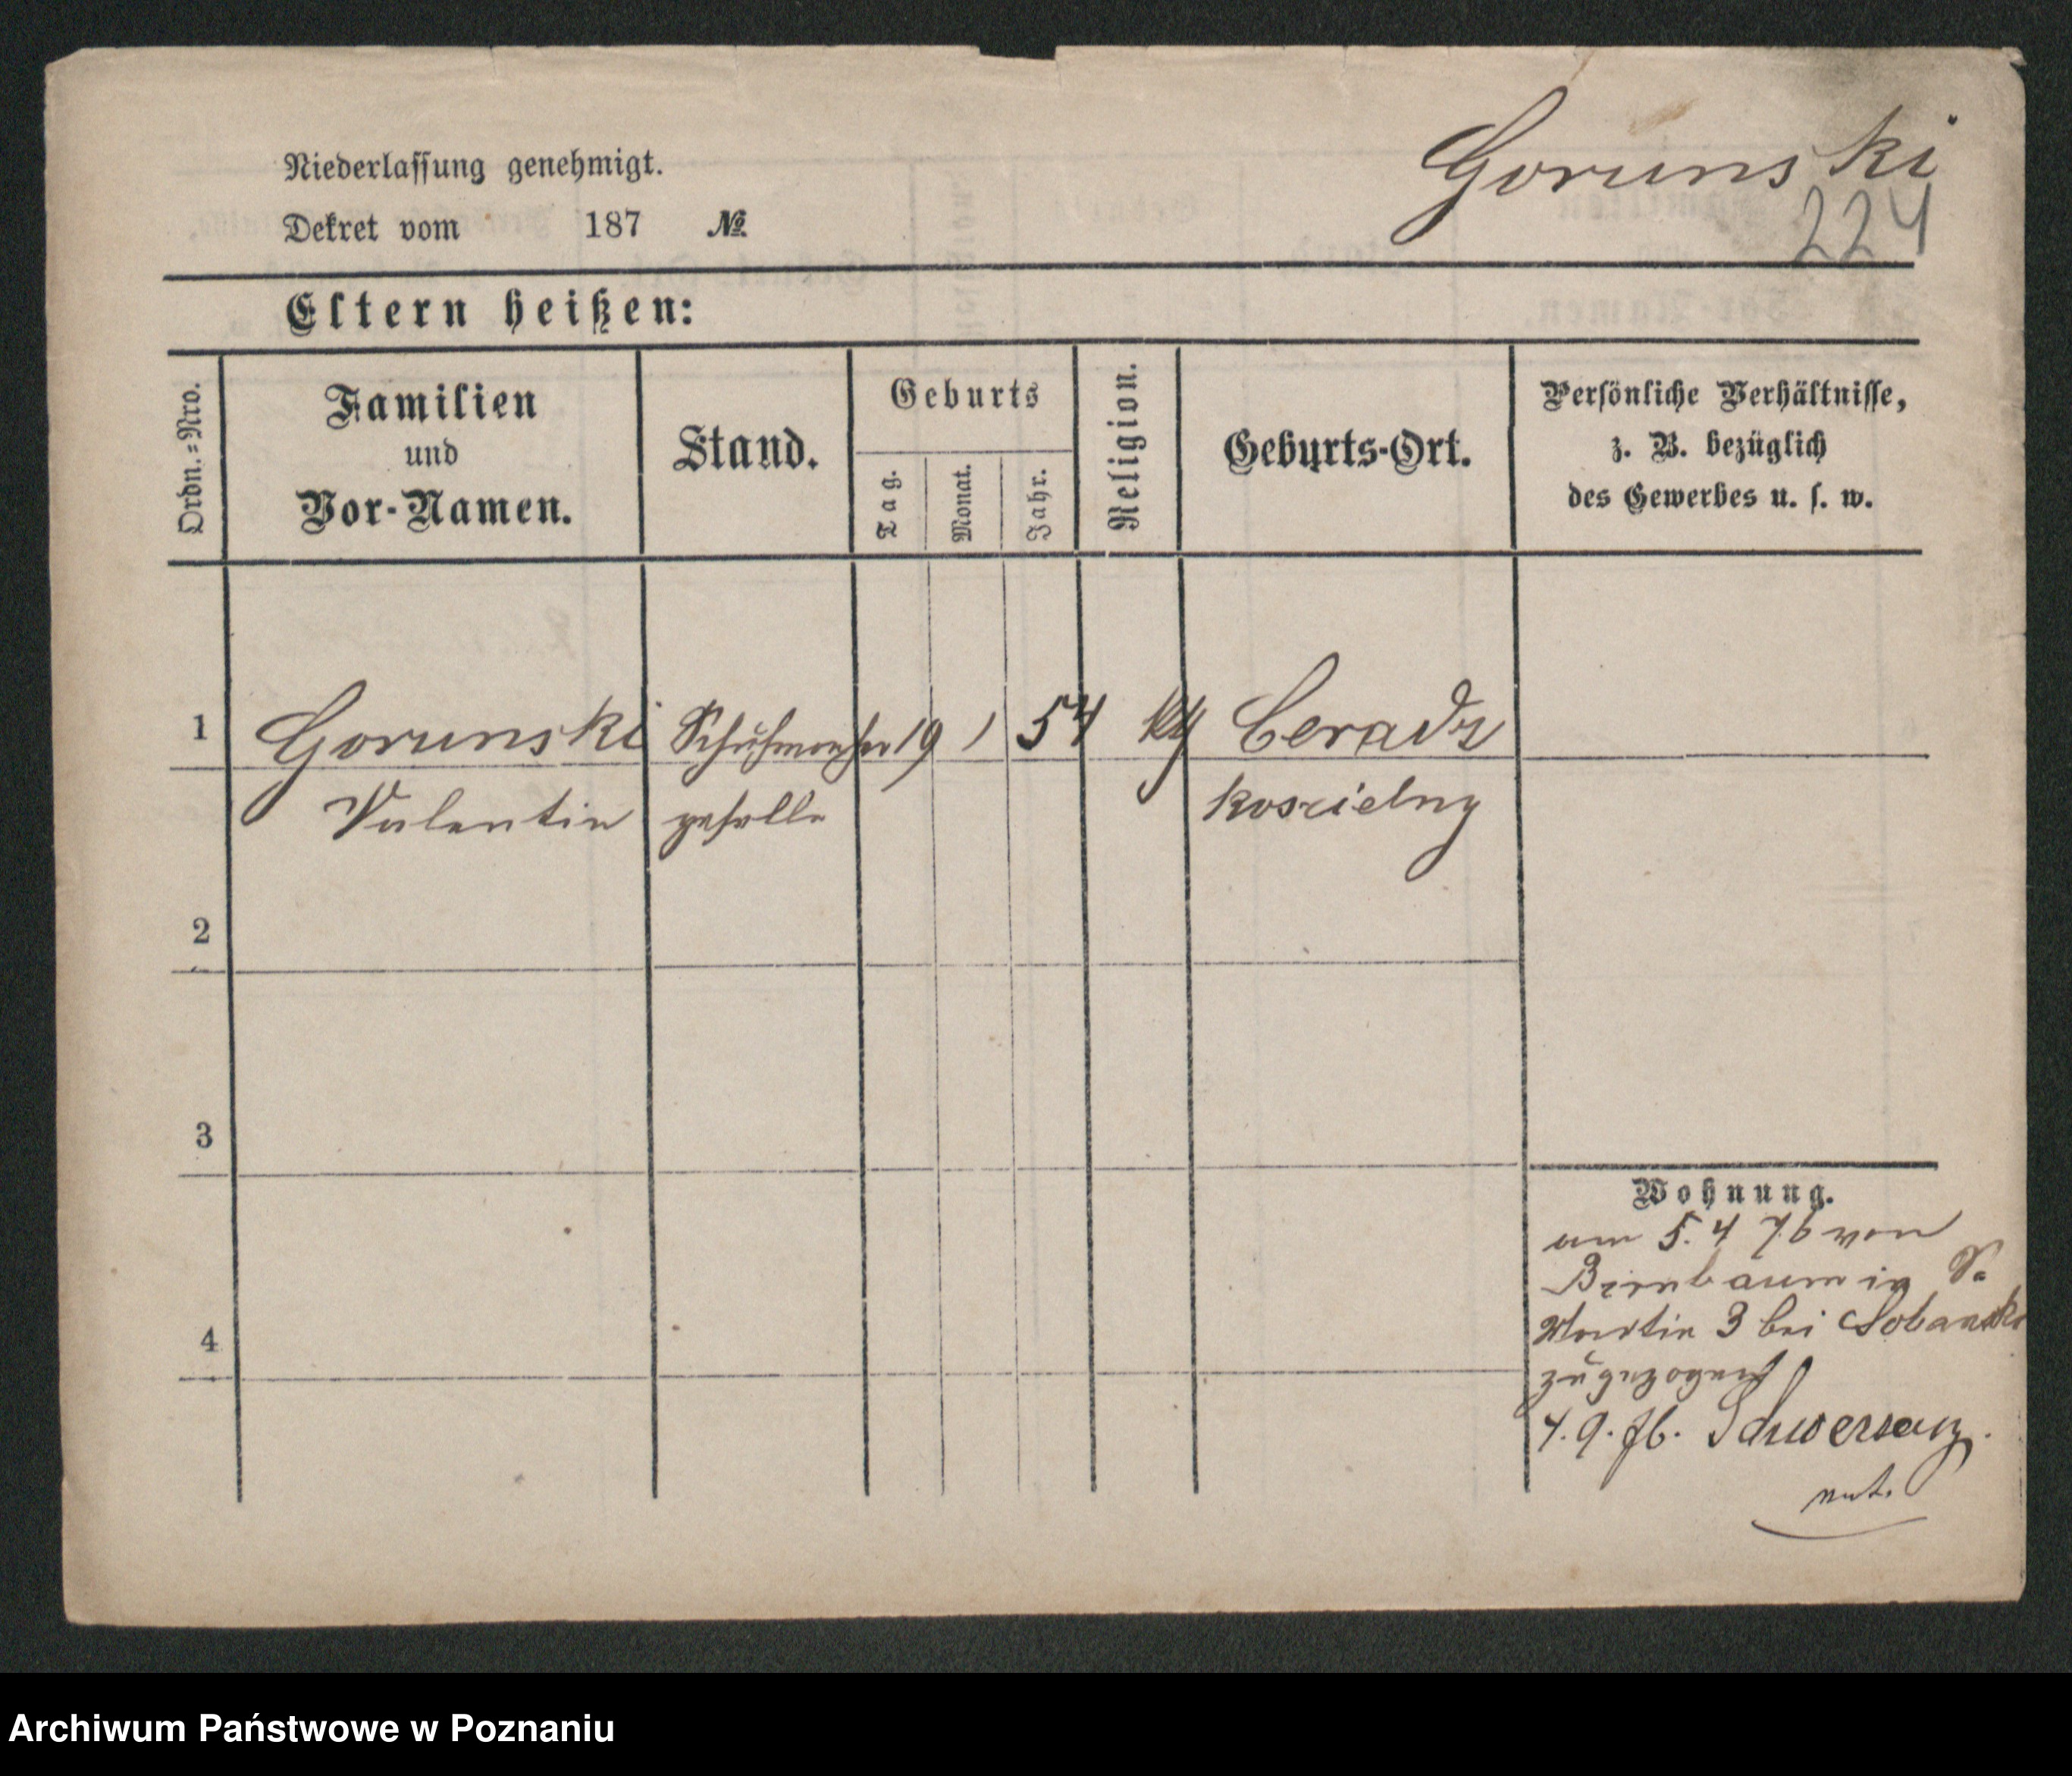 Gorunski
224
Niederlassung genehmigt.
Dekret vom 187 №
Eltern heißen:
Ordn.-Nro.
Familien
und
Vor-Namen.
Stand.
Geburts
Tag.
Monat.
Jahr.
Religion.
Geburts-Ort.
Persönliche Verhältnisse,
z. B. bezüglich
des Gewerbes u. s. w.
1 Gorunski Schuhmacher 19 1 54 kth Ceradz
Valentin geselle koszielny
2
3
4
Wohnung.
am 5. 4 76 von
Birnbaum in St
Martin 3 bei Sobanski
zugezogen
4. 9. 76. Schwersenz.
Archiwum Państwowe w Poznaniu